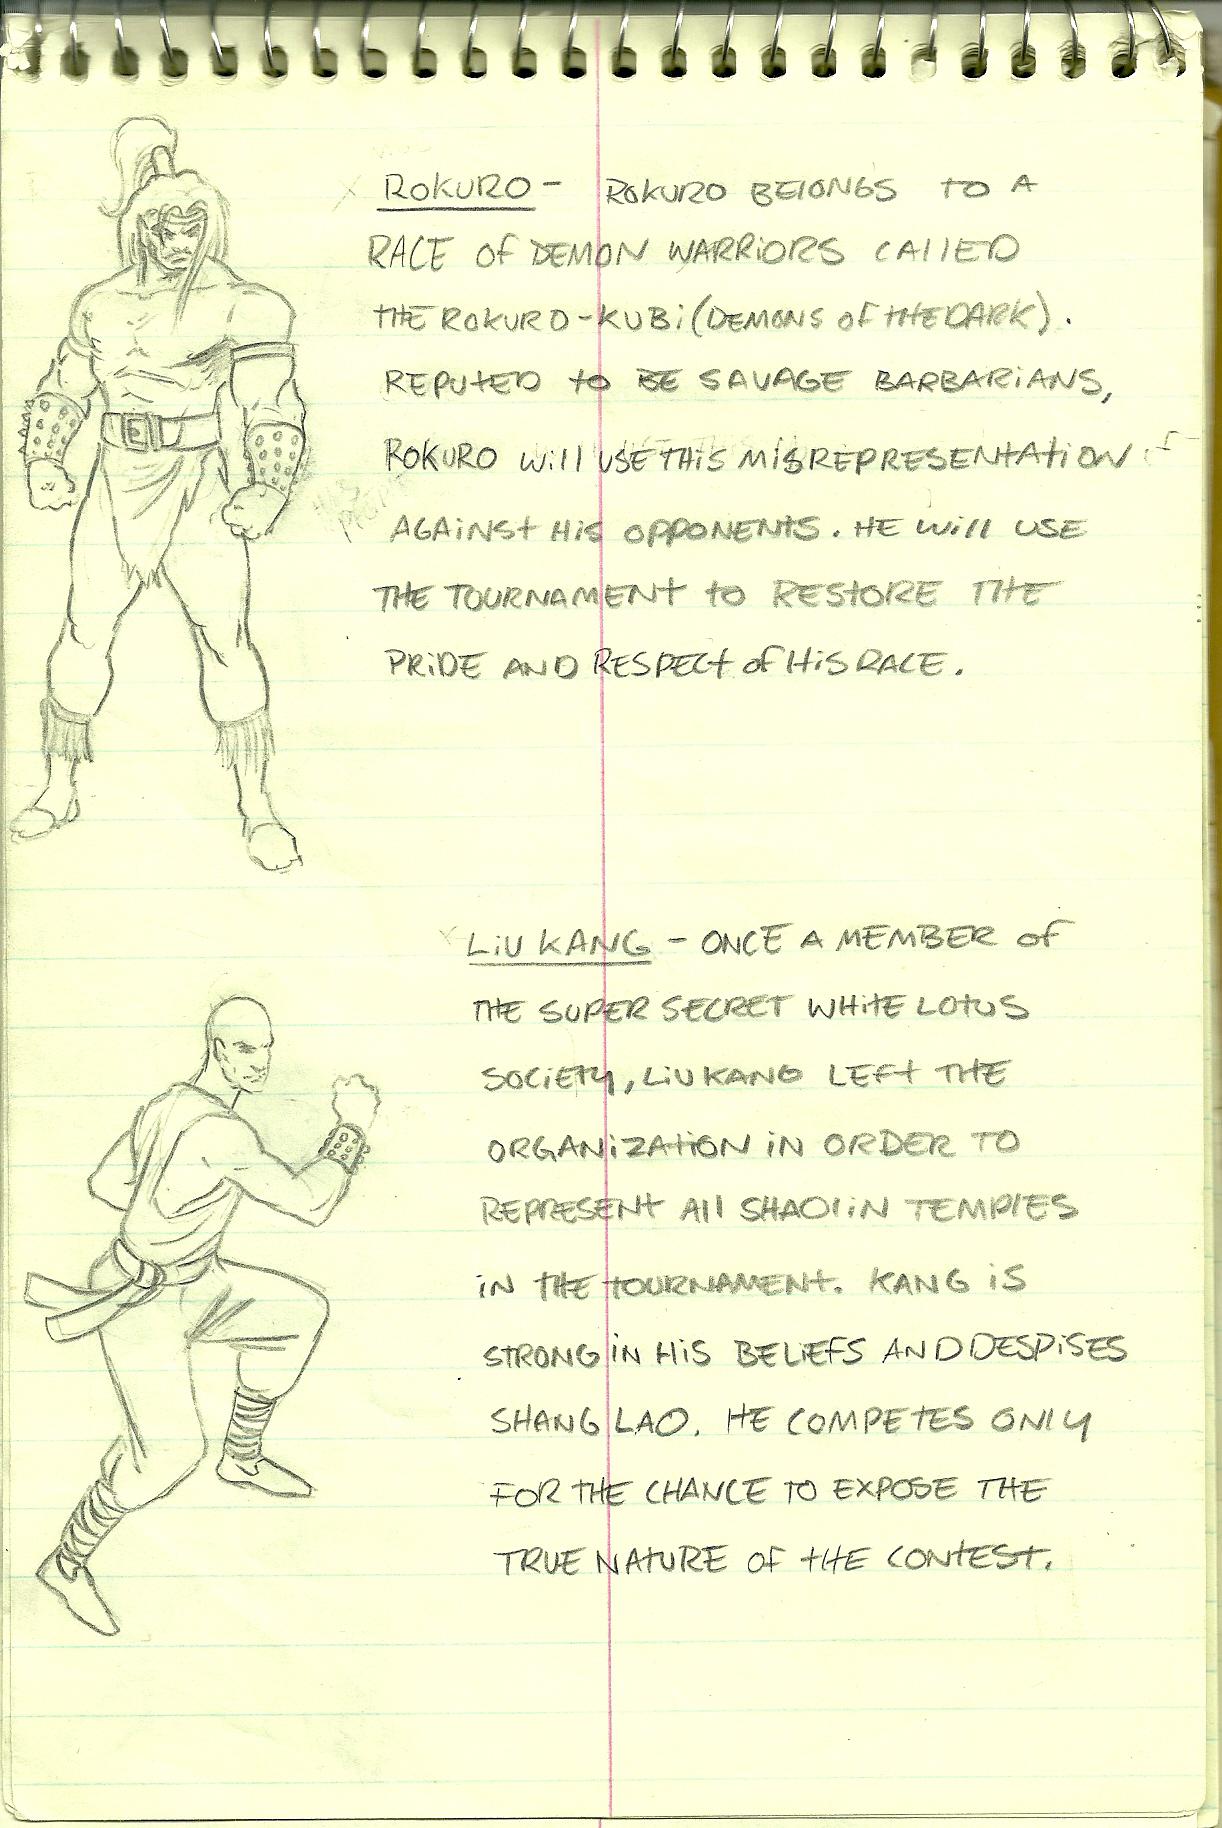 ROKURO - ROKURO BELONGS TO A
RACE OF DEMON WARRIORS CALLED
THE ROKURO-KUBI (DEMONS OF THE DARK).
REPUTED TO BE SAVAGE BARBARIANS,
ROKURO WILL USE THIS MISREPRESENTATION
AGAINST HIS OPPONENTS. HE WILL USE
THE TOURNAMENT TO RESTORE THE
PRIDE AND RESPECT OF HIS RACE.
LIU KANG - ONCE A MEMBER OF
THE SUPER SECRET WHITE LOTUS
SOCIETY, LIU KANG LEFT THE
ORGANIZATION IN ORDER TO
REPRESENT ALL SHAOLIN TEMPLES
IN THE TOURNAMENT. KANG IS
STRONG IN HIS BELIEFS AND DESPISES
SHANG LAO. HE COMPETES ONLY
FOR THE CHANCE TO EXPOSE THE
TRUE NATURE OF THE CONTEST.